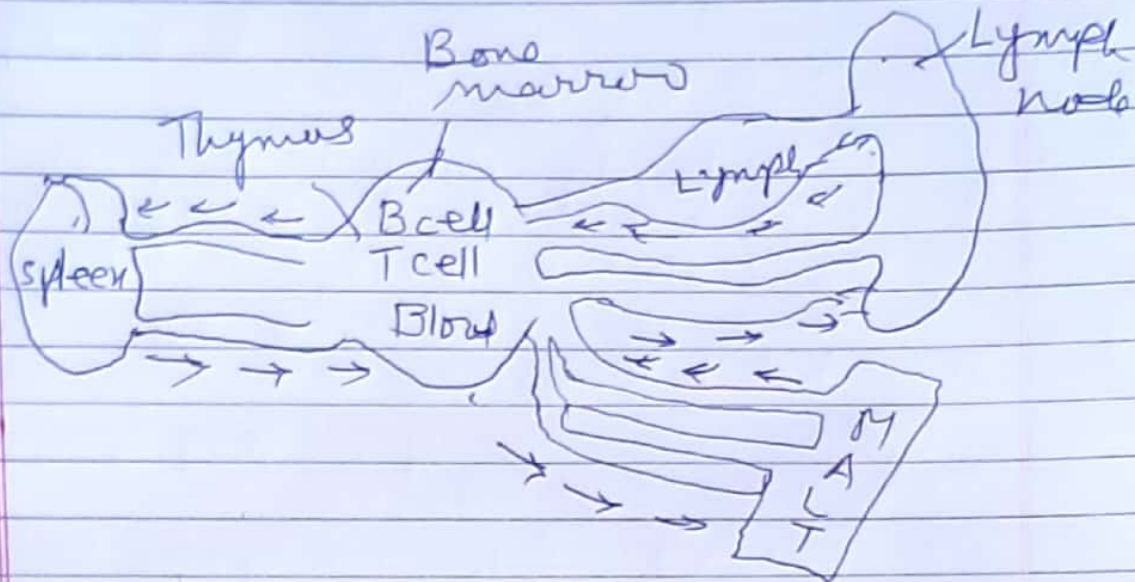 Bone
marrow
Lymph
node
Thymus
Lymph
B cell
T cell
Spleen
Blood
M
A
L
T